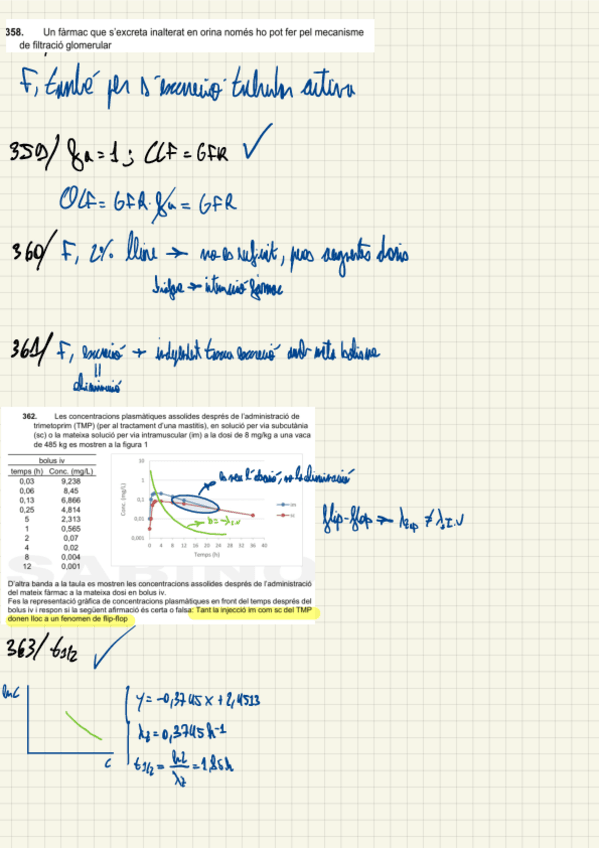 358. Un fàrmac que s'excreta inalterat en orina només ho pot fer pel mecanisme
de filtració glomerular
F, també per excreció tubular activa
359/ fu=1; CLF = GFR ✓
CLF = GFR·fu = GFR
360/ F, 2% lliure → no és suficient, dosis
361/ F, excreció →
||
eliminació
362. Les concentracions plasmàtiques assolides després de l'administració de
trimetoprim (TMP) (per al tractament d'una mastitis), en solució per via subcutània
(sc) o la mateixa solució per via intramuscular (im) a la dosi de 8 mg/kg a una vaca
de 485 kg es mostren a la figura 1
bolus iv
temps (h) Conc. (mg/L)
0,03 9,238
0,06 8,45
0,13 6,866
0,25 4,814
5 2,313
1 0,565
2 0,07
4 0,02
8 0,004
12 0,001
Conc. (mg/L)
10
1
0,1
0,01
0,001
0 4 8 12 16 20 24 28 32 36 40
Temps (h)
im
sc
flip-flop →
D'altra banda a la taula es mostren les concentracions assolides després de l'administració
del mateix fàrmac a la mateixa dosi en bolus iv.
Fes la representació gràfica de concentracions plasmàtiques en front del temps després del
bolus iv i respon si la següent afirmació és certa o falsa: Tant la injecció im com sc del TMP
donen lloc a un fenomen de flip-flop
363/ t1/2 ✓
lnC
C
y = -0,3745x + 2,4513
λz = 0,3745h-1
t1/2 = ln2/λz = 1,85h